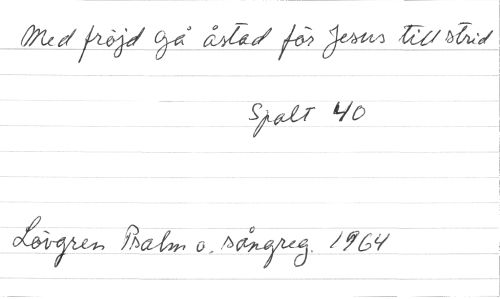 Med fröjd gå åstad för Jesus till strid
Spalt 40
Lövgren Psalm o. sångreg. 1964